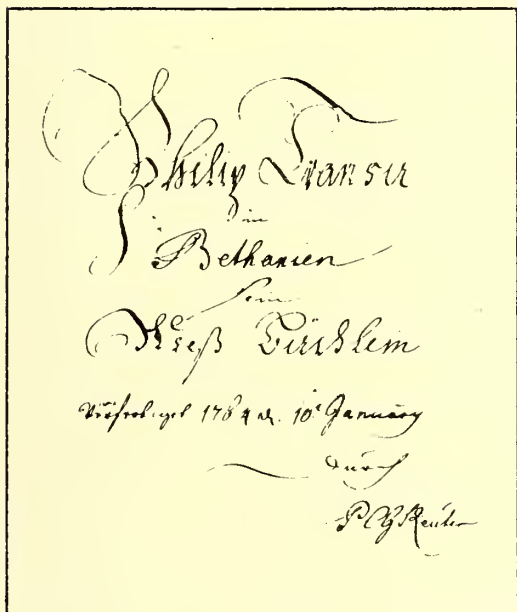 Philip Transu
in
Bethanien
sein
Meß Büchlein
Verfertiget 1764 d. 10t January
durch
Reuter